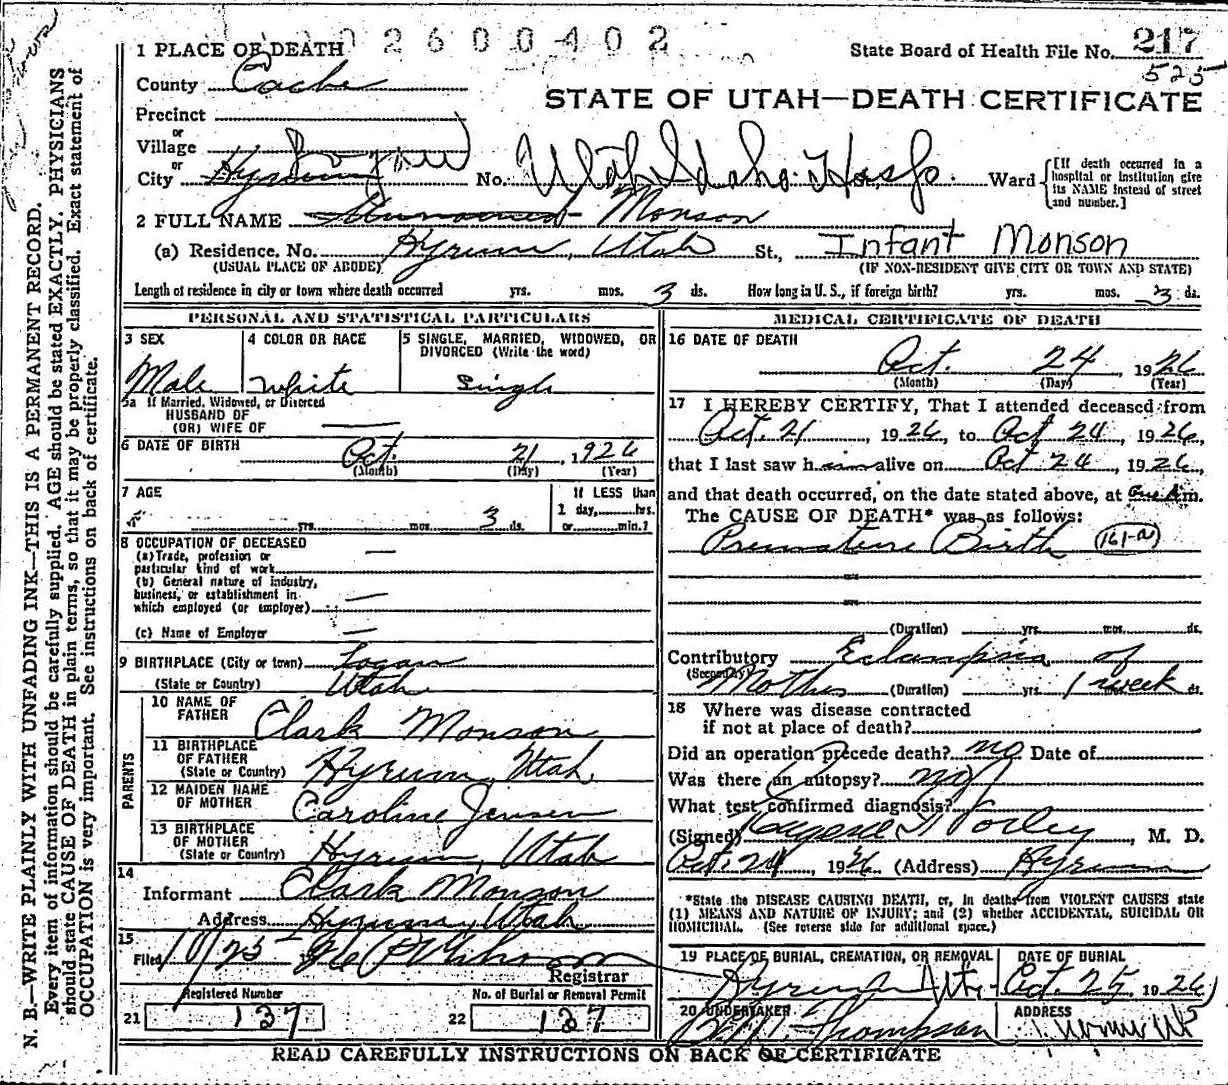 02600402
1 PLACE OF DEATH
State Board of Health File No. 217
525
County Cache
STATE OF UTAH—DEATH CERTIFICATE
Precinct
or
Village
or
City Hyrum No. Utah Idaho Hosp. St., Ward
[If death occurred in a hospital or institution give its NAME instead of street and number.]
2 FULL NAME Unnamed Monson
Infant Monson
(a) Residence. No. Hyrum, Utah St.,
(USUAL PLACE OF ABODE) (IF NON-RESIDENT GIVE CITY OR TOWN AND STATE)
Length of residence in city or town where death occurred yrs. mos. 3 ds. How long in U. S., if foreign birth? yrs. mos. 3 ds.
PERSONAL AND STATISTICAL PARTICULARS
3 SEX 4 COLOR OR RACE 5 SINGLE, MARRIED, WIDOWED, OR DIVORCED (Write the word)
Male White Single
5a If Married, Widowed, or Divorced
HUSBAND OF
(OR) WIFE OF
6 DATE OF BIRTH Oct. 21, 1926
(Month) (Day) (Year)
7 AGE If LESS than
yrs. mos. 3 ds. 1 day, hrs.
or min.?
8 OCCUPATION OF DECEASED
(a) Trade, profession or
particular kind of work
(b) General nature of industry,
business, or establishment in
which employed (or employer)
(c) Name of Employer
9 BIRTHPLACE (City or town) Logan
(State or Country) Utah
PARENTS
10 NAME OF FATHER Clark Monson
11 BIRTHPLACE OF FATHER (State or Country) Hyrum, Utah
12 MAIDEN NAME OF MOTHER Caroline Jensen
13 BIRTHPLACE OF MOTHER (State or Country) Hyrum, Utah
14
Informant Clark Monson
Address Hyrum, Utah
15
Filed 10/25
Registrar
Registered Number No. of Burial or Removal Permit
21 137 22 137
MEDICAL CERTIFICATE OF DEATH
16 DATE OF DEATH
Oct. 24 1926
(Month) (Day) (Year)
17 I HEREBY CERTIFY, That I attended deceased from
Oct. 21, 1926, to Oct 24, 1926,
that I last saw him alive on Oct 24, 1926,
and that death occurred, on the date stated above, at one A m.
The CAUSE OF DEATH* was as follows:
Premature Birth (161-a)
(Duration) yrs. mos. ds.
Contributory Eclampsia of
(Secondary) Mother (Duration) yrs. 1 week ds.
18 Where was disease contracted
if not at place of death?
Did an operation precede death? no Date of
Was there an autopsy? no
What test confirmed diagnosis?
(Signed) Eugene Worley, M. D.
Oct. 24, 1926 (Address) Hyrum
*State the DISEASE CAUSING DEATH, or, in deaths from VIOLENT CAUSES state
(1) MEANS AND NATURE OF INJURY; and (2) whether ACCIDENTAL, SUICIDAL OR
HOMICIDAL. (See reverse side for additional space.)
19 PLACE OF BURIAL, CREMATION, OR REMOVAL DATE OF BURIAL
Hyrum Oct. 25, 1926
20 UNDERTAKER ADDRESS
Thompson
READ CAREFULLY INSTRUCTIONS ON BACK OF CERTIFICATE
N. B.—WRITE PLAINLY WITH UNFADING INK—THIS IS A PERMANENT RECORD.
Every item of information should be carefully supplied. AGE should be stated EXACTLY. PHYSICIANS
should state CAUSE OF DEATH in plain terms, so that it may be properly classified. Exact statement of
OCCUPATION is very important. See instructions on back of certificate.